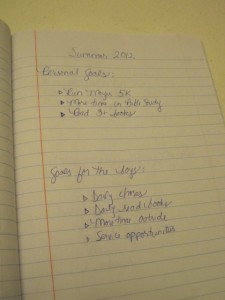 Summer 2012
Personal Goals:
Run Mega 5K
More time in Bible Study
Read 3+ books
Goals for the boys:
Daily chores
Daily read books
More time outside
Service opportunities